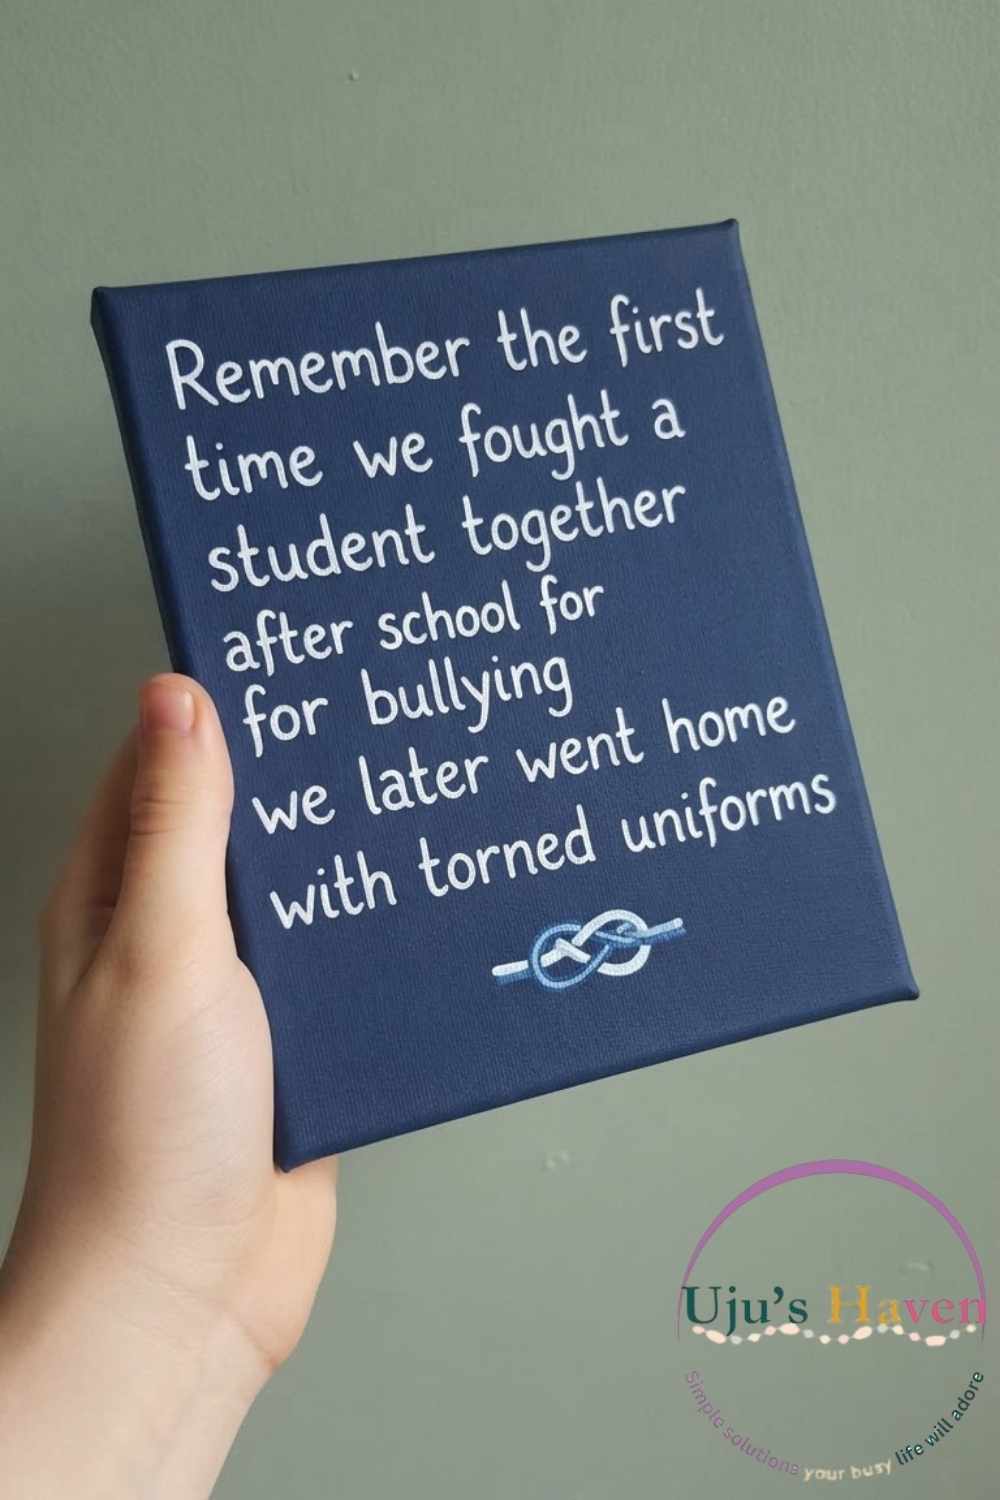 Remember the first
time we fought a
student together
after school for
for bullying
we later went home
with torned uniforms
Uju's Haven
Simple solutions your busy life will adore